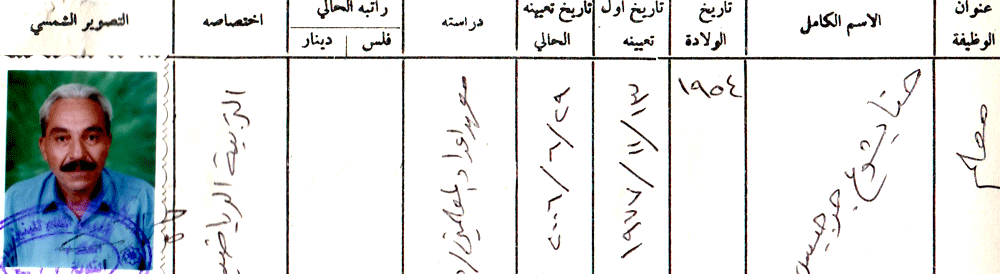 عنوان الوظيفة
الاسم الكامل
تاريخ الولادة
تاريخ اول تعيينه
تاريخ تعيينه الحالي
دراسته
راتبه الحالي
فلس
دينار
اختصاصه
التصوير الشمسي
معلم
حنا يشوع جرجيس
١٩٥٤
١٩٧٧/١١/١٣
٢٠٠٦/٦/٢٩
معهد اعداد المعلمين
التربية الرياضية